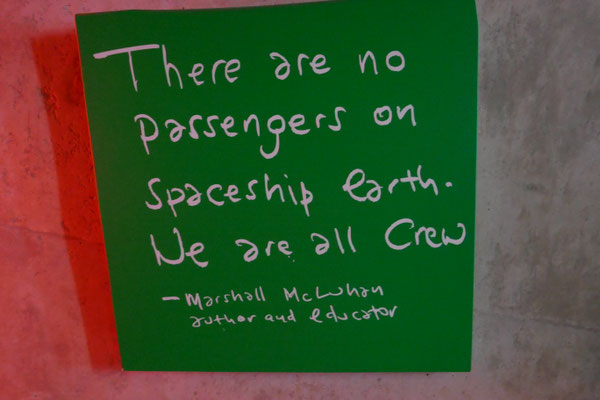 There are no
passengers on
spaceship earth.
We are all Crew
— Marshall McLuhan
author and educator